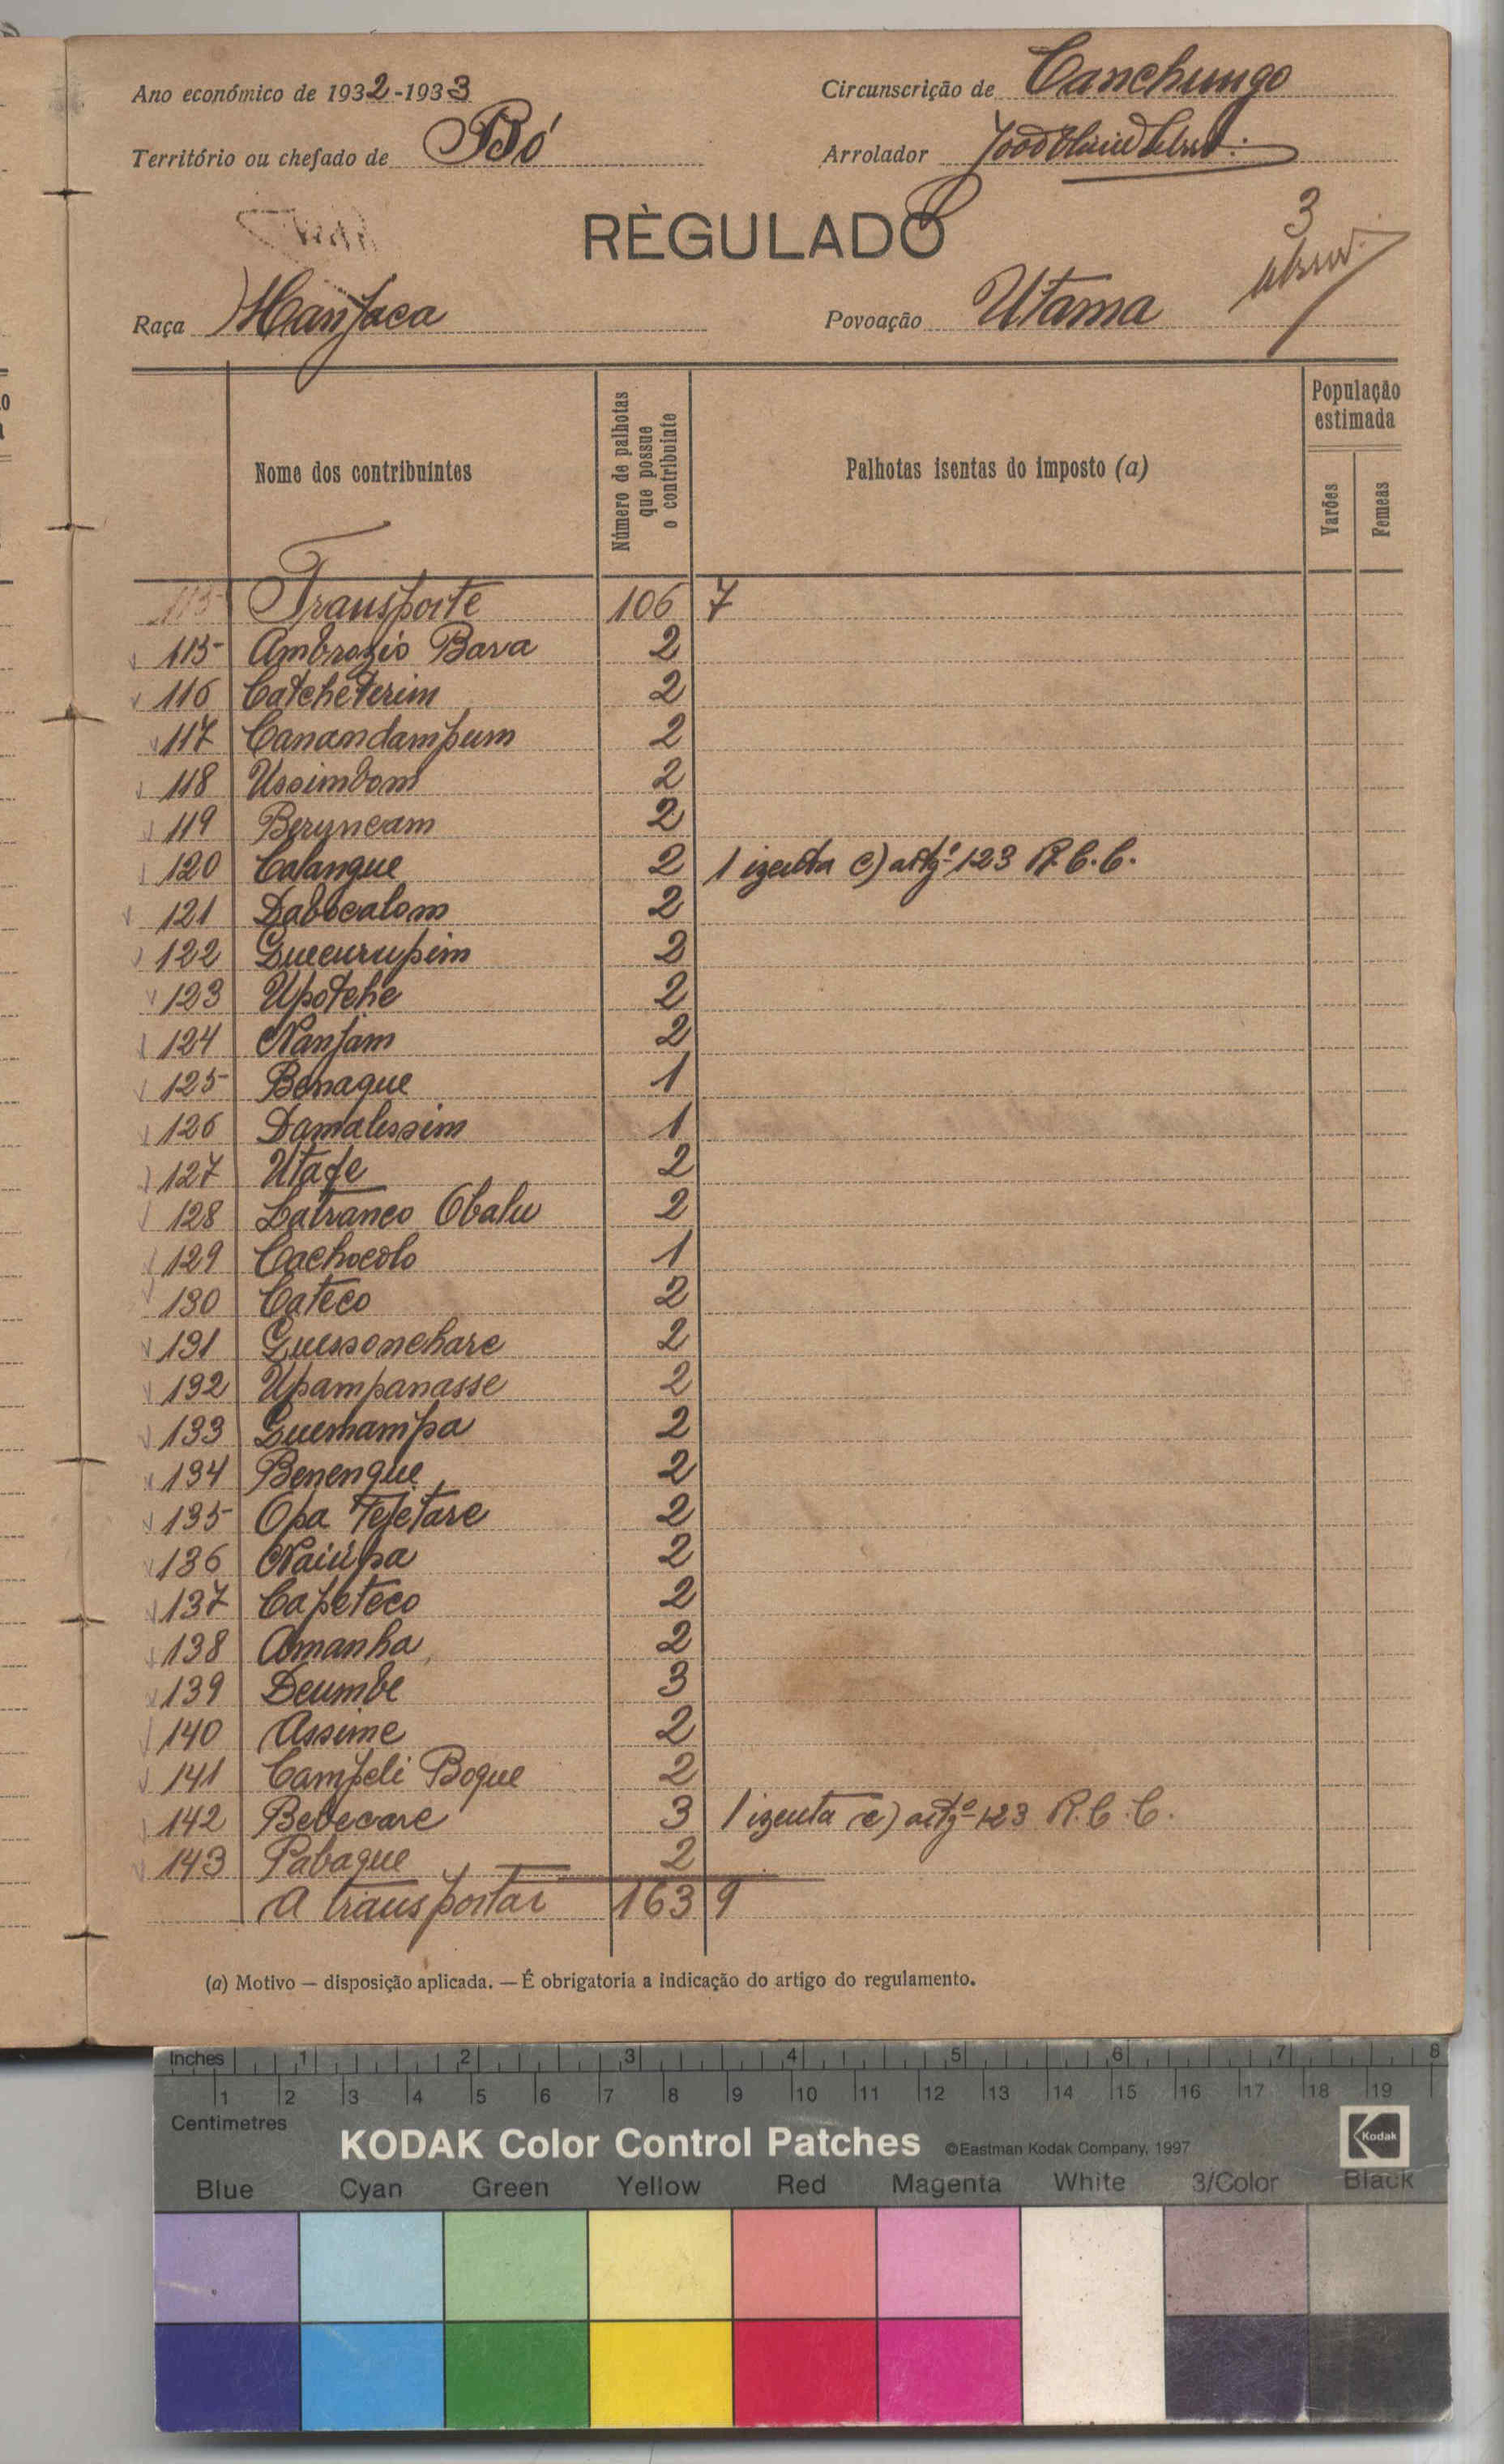 Ano económico de 1932-1933
Circunscrição de Canchungo
Território ou chefado de Bó
Arrolador
RÈGULADO
3
Raça Manjaca
Povoação Utama
Nome dos contribuintes
Número de palhotas que possue o contribuinte
Palhotas isentas do imposto (a)
População estimada
Varões
Femeas
115 Transporte 106 7
115 Ambrozio Bava 2
116 Catcheterim 2
117 Canandampum 2
118 Ussimbom 2
119 Beryncam 2
120 Calangue 2 1 izenta c) artgº 123 R.C.C.
121 Dabocalom 2
122 Guecurupim 2
123 Upotche 2
124 Nanjam 2
125 Benaque 1
126 Damalissim 1
127 Utafe 2
128 Latranco Obalu 2
129 Cachocolo 1
130 Cateco 2
131 Guessonchare 2
132 Upampanasse 2
133 Guemampa 2
134 Benengue 2
135 Opa Tejetare 2
136 Naiúpa 2
137 Capeteco 2
138 Amanha 2
139 Deumbe 3
140 Assime 2
141 Campeli Boque 2
142 Bebecare 3 1 izenta c) artgº 123 R.C.C.
143 Pabaque 2
A transportar 163 9
(a) Motivo — disposição aplicada. — É obrigatoria a indicação do artigo do regulamento.
Inches 1 2 3 4 5 6 7 8
1 2 3 4 5 6 7 8 9 10 11 12 13 14 15 16 17 18 19
Centimetres
KODAK Color Control Patches ©Eastman Kodak Company, 1997 Kodak
Blue Cyan Green Yellow Red Magenta White 3/Color Black